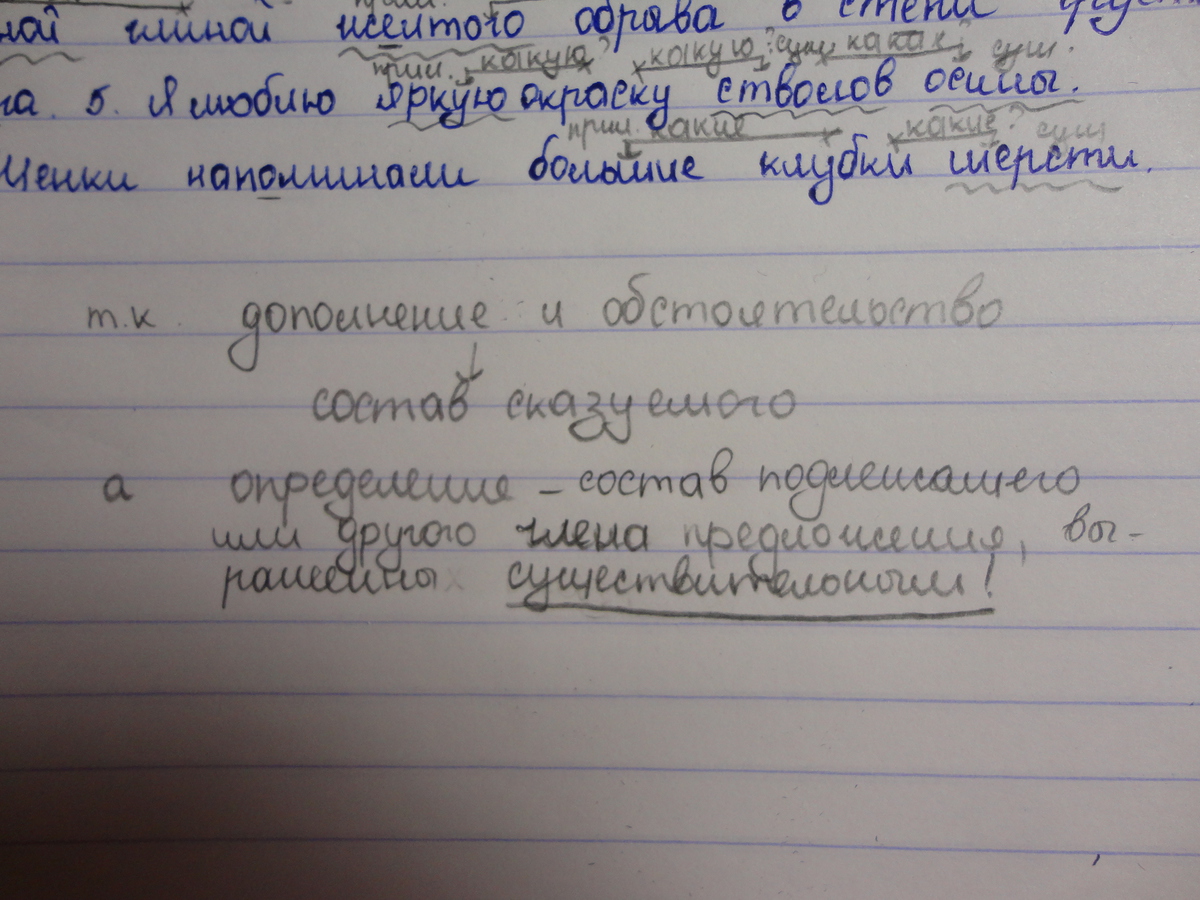 ной глиной жёлтого обрыва в степи
прил. какую? какую? сущ. какая? сущ.
га. 5. Я люблю яркую окраску стволов осины.
прил. какие какие? сущ
Щенки напоминали большие клубки шерсти.
т.к дополнение и обстоятельство
состав сказуемого
а определение – состав подлежащего
или другого члена предложения, вы-
раженны существительным!